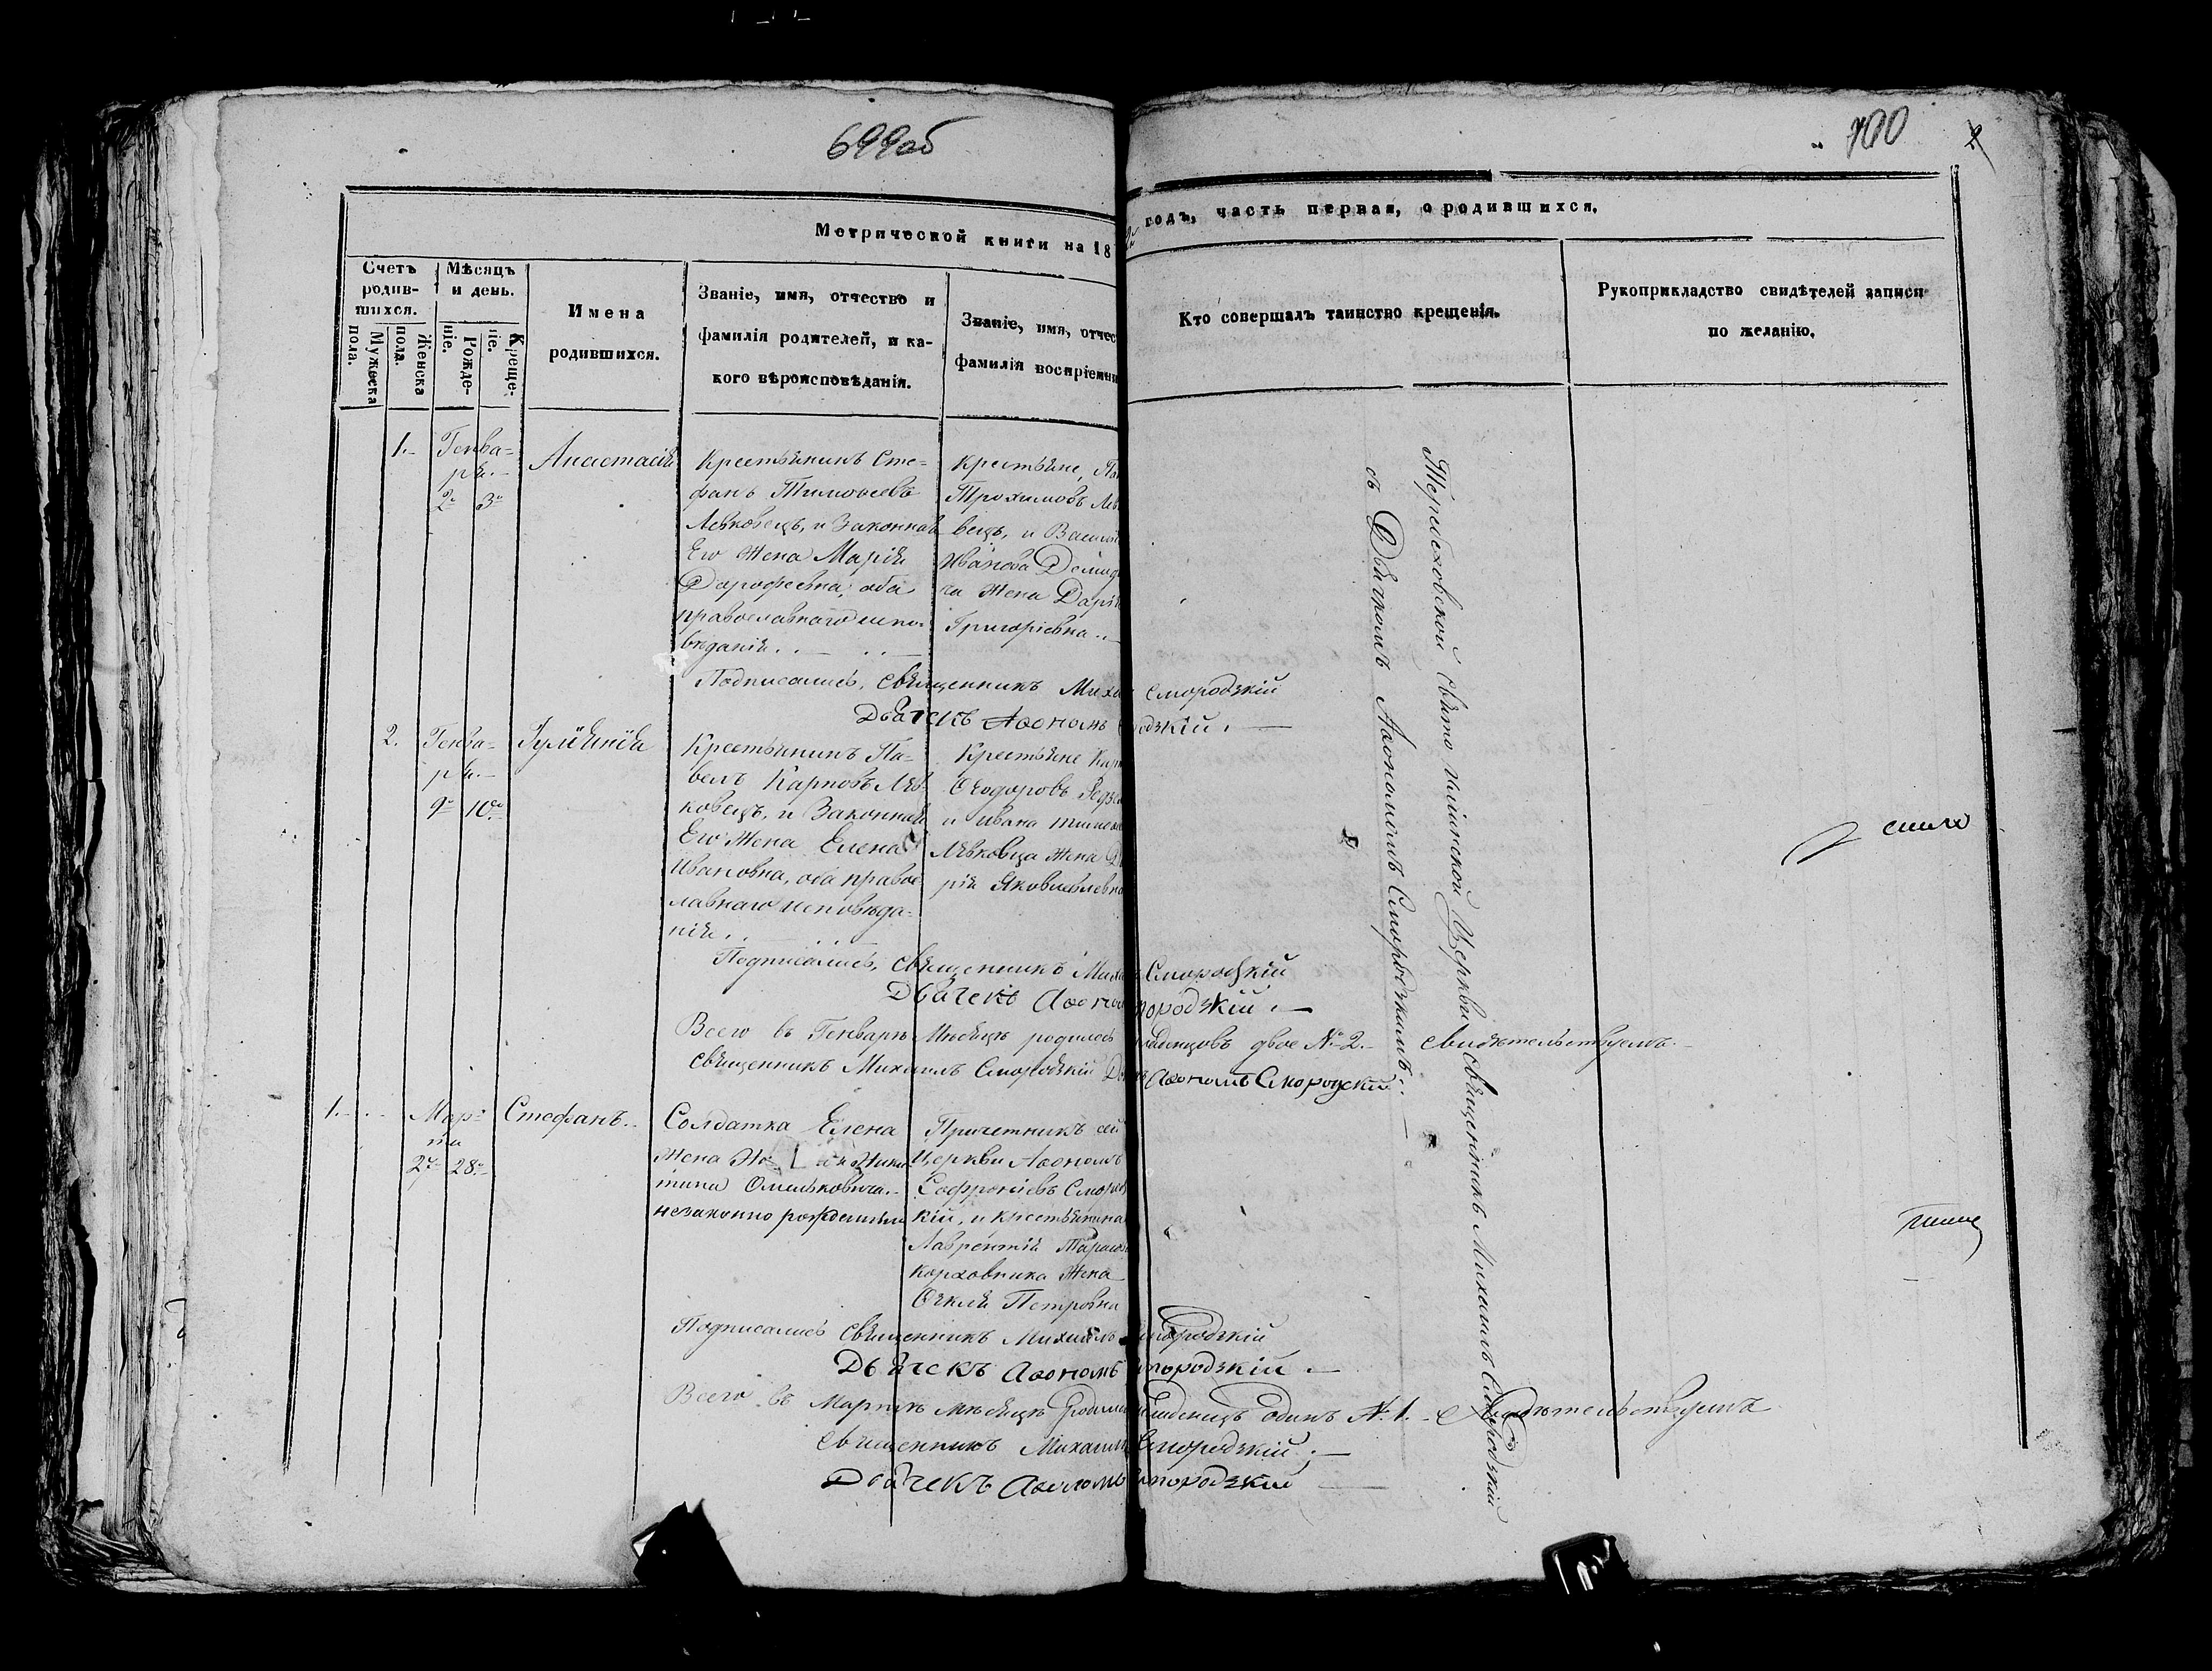 699об
700
2
Метрической книги на 18
годъ, часть первая, о родившихся.
Счетъ родив-шихся.
Мужеска пола.
Женска пола.
Мѣсяцъ и день.
Рожде-ніе.
Креще-ніе.
Имена
родившихся.
Званіе, имя, отчество и
фамилія родителей, и ка-
кого вѣроисповѣданія.
Званіе, имя, отчес
фамилія воспріемни
Кто совершалъ таинство крещенія.
Рукоприкладство свидѣтелей записи
по желанію.
1.
Генва-
ря.
2 3
Анастасія
Крестьянинъ Сте-
фанъ Тимоѳеевъ
Левковецъ, и Законная
Его Жена Марія
Дарофеевна, оба
православнаго испо-
вѣданія.
Крестьяне,
Трохимовъ Лев
вецъ, и Васил
Иванова Демид
ка Жена Дарія
Григоріевна.
Подписались, Священникъ Миха Смородзкій
Дьячекъ Аѳономъ одзкій.
2.
Генва-
ря.
9 10
Іуліянія
Крестьянинъ Па-
велъ Карповъ Лев-
ковецъ, и Законная
Его Жена Елена
Ивановна, оба право-
славнаго исповѣда-
нія.
Крестьяне Кар
Ѳеодоровъ
и Ивана Тимоѳе
Левковца Жена Да
рія Яковлевна
Подписались, Священникъ Миха Смородзкій
Дьячекъ Аѳоном мородзкій.
Всего въ Генварѣ Мѣсяцѣ родилось младенцовъ двое № 2. Свидѣтельствуемъ.
Священникъ Михаилъ Смородзкій Аѳономъ Смородскій
1.
Мар-
та
27 28
Стефанъ.
Солдатка Елена
Жена
тина Омельковича.
незаконно рожденный
Причетникъ сей
Церкви Аѳономъ
Софроніевъ Смород
кій, и крестьянина
Лаврентія Тарасов
Корховника Жена
Ѳекла Петровна
Подписались Священникъ Михаилъ Смородзкій
Дьячекъ Аѳономъ Смородзкій.
Всего въ Мартѣ мѣсяцѣ родил младенецъ одинъ № 1. Свидѣтельствуемъ
Священникъ Михаилъ Смородзкій.
Дьячекъ Аѳономъ Смородзкій
Теребеховской Свято Ильинской Церкви Священникъ Михаилъ Смородзкій
съ Дьячкомъ Аѳономомъ Смородзкимъ.